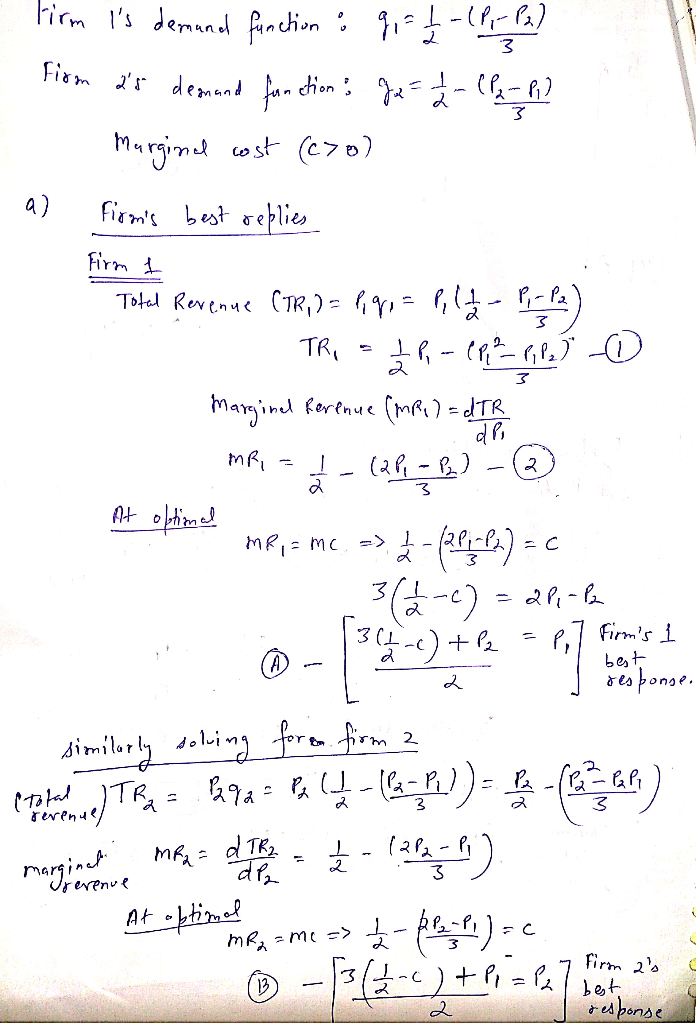 Firm 1's demand function : q₁ = 1/2 - (P₁-P₂)/3
Firm 2's demand function : q₂ = 1/2 - (P₂-P₁)/3
Marginal cost (c>0)
a) Firm's best replies
Firm 1
Total Revenue (TR₁) = P₁q₁ = P₁(1/2 - (P₁-P₂)/3)
TR₁ = 1/2 P₁ - (P₁² - P₁P₂)/3 - ①
Marginal Revenue (MR₁) = dTR/dP₁
MR₁ = 1/2 - (2P₁ - P₂)/3 - ②
At optimal
MR₁ = MC => 1/2 - (2P₁-P₂)/3 = c
3(1/2 - c) = 2P₁ - P₂
Ⓐ - [(3(1/2 - c) + P₂)/2 = P₁] Firm's 1 best response.
similarly solving for firm 2
(Total revenue) TR₂ = P₂q₂ = P₂(1/2 - (P₂-P₁)/3) = P₂/2 - (P₂² - P₂P₁)/3
marginal revenue MR₂ = dTR₂/dP₂ = 1/2 - (2P₂ - P₁)/3
At optimal
MR₂ = MC => 1/2 - (2P₂-P₁)/3 = c
Ⓑ - [(3(1/2 - c) + P₁)/2 = P₂] Firm 2's best response